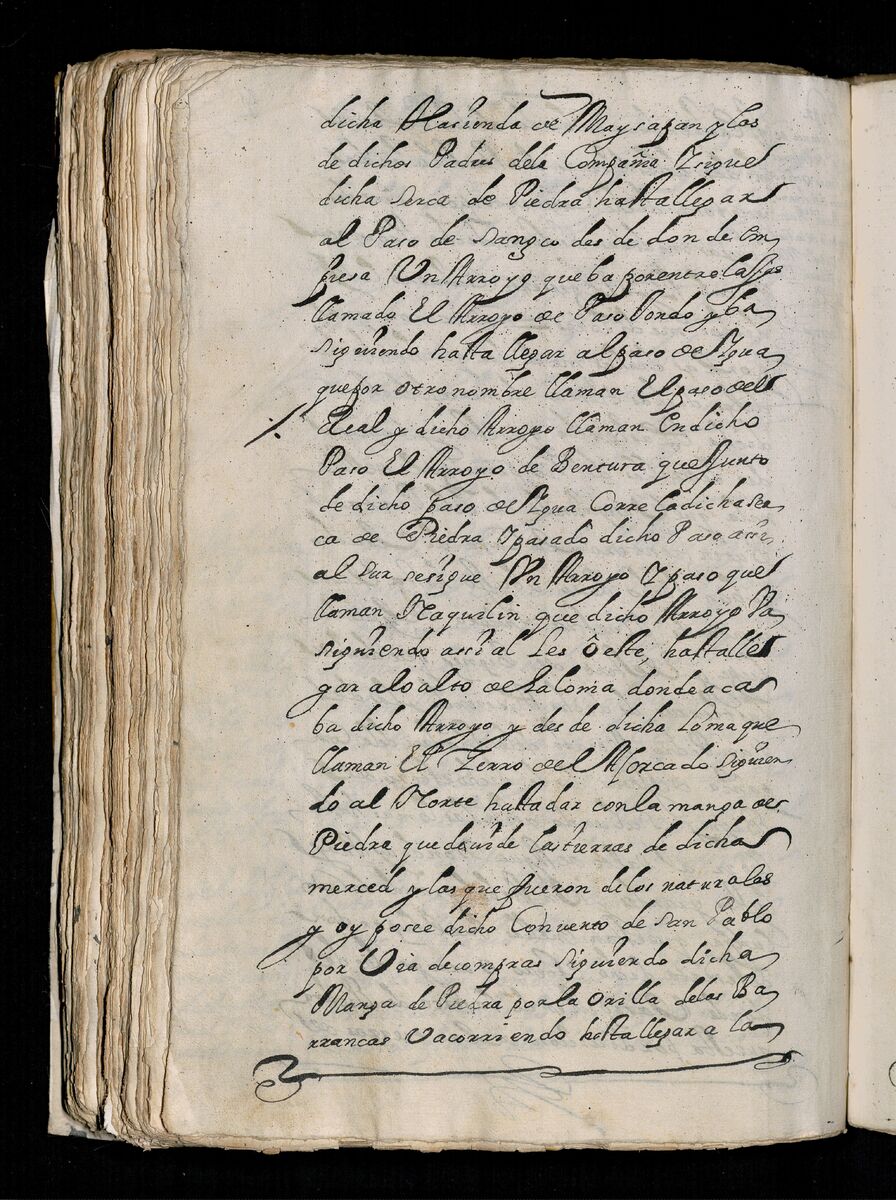 dicha Hasienda de Maysapan y los
de dichos Padres dela Compañia Y sigue
dicha serca de Piedra hasta llegar
al Paso de Sangco des de don de em
piesa Vn Arroyo que ba por entro
llamado El Arroyo de Paso Hondo y ba
siguiendo hasta llegar al paso de Agua
que por otro nombre llaman El paso del
Real y dicho Arroyo llaman En dicho
Paso El Arroyo de Bentura que Junto
de dicho paso de Agua Corre la dicha ser
ca de Piedra Y pasado dicho Paso assi
al Sur se sigue Vn Arroyo Y paso que
llaman Naquilin que dicho Arroyo Va
siguiendo assi al Les ôeste, hasta lle
gar alo alto de la loma donde aca
ba dicho Arroyo y des de dicha Loma que
llaman El Zerro del Aforcado siguien
do al Norte hasta dar con la manga de
Piedra que deuide las tierras de dicha
merced y las que fueron de los naturales
y oy posee dicho Convento de San Pablo
por Via de compras siguiendo dicha
Manga de Piedra por la orilla delas Ba
rrancas Va corriendo hasta llegar a la